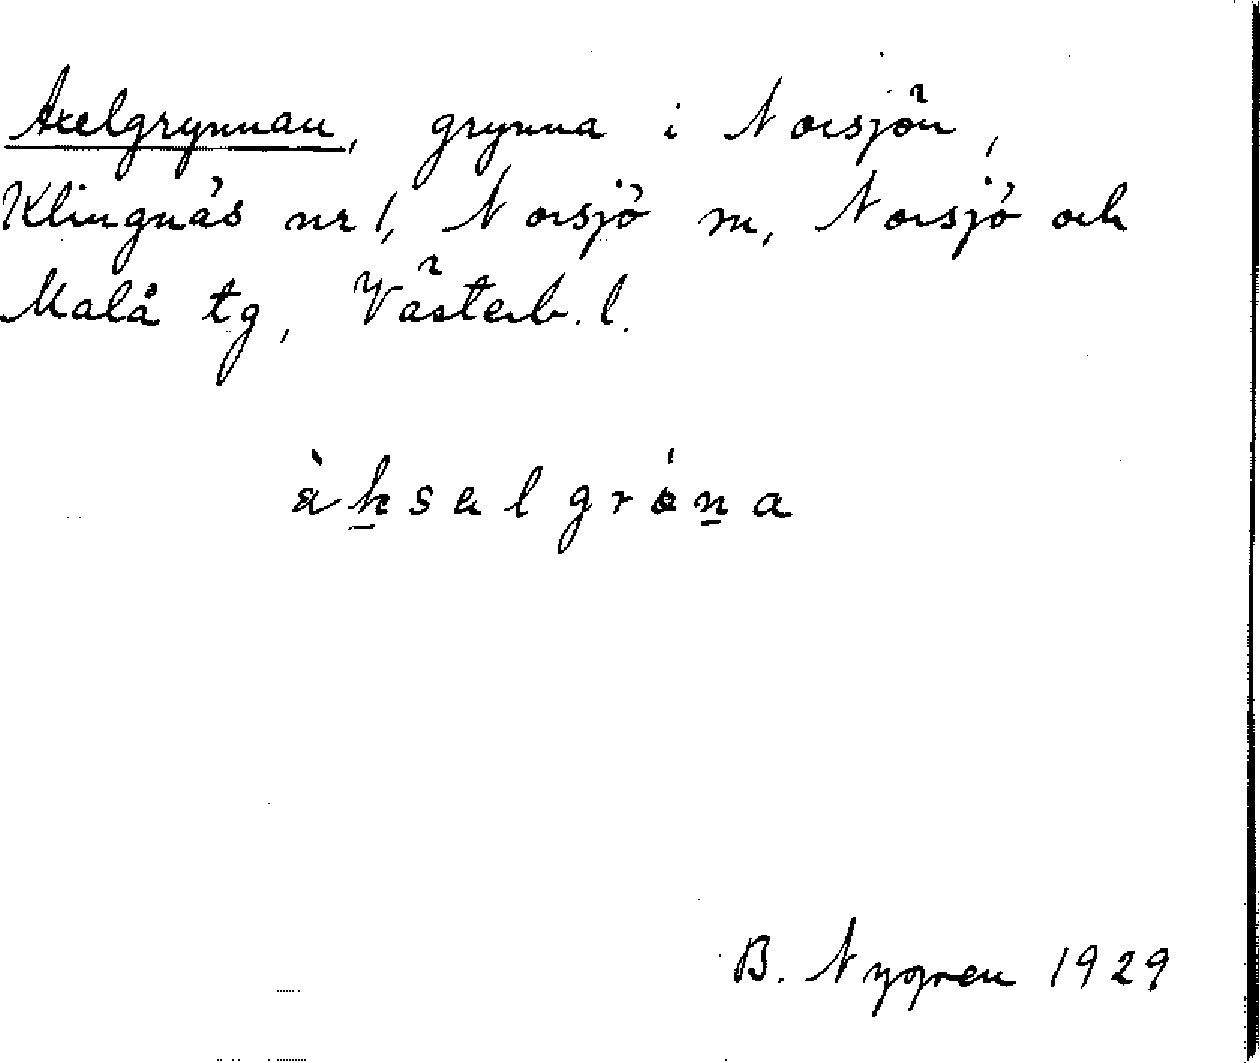 Axelgrynnan, grynna i Norsjön,
Klingnäs nr 1, Norsjö sn, Norsjö och
Malå tg, Västerb. l.
àk̲səlgrö́n̲a
B. Nygren 1929